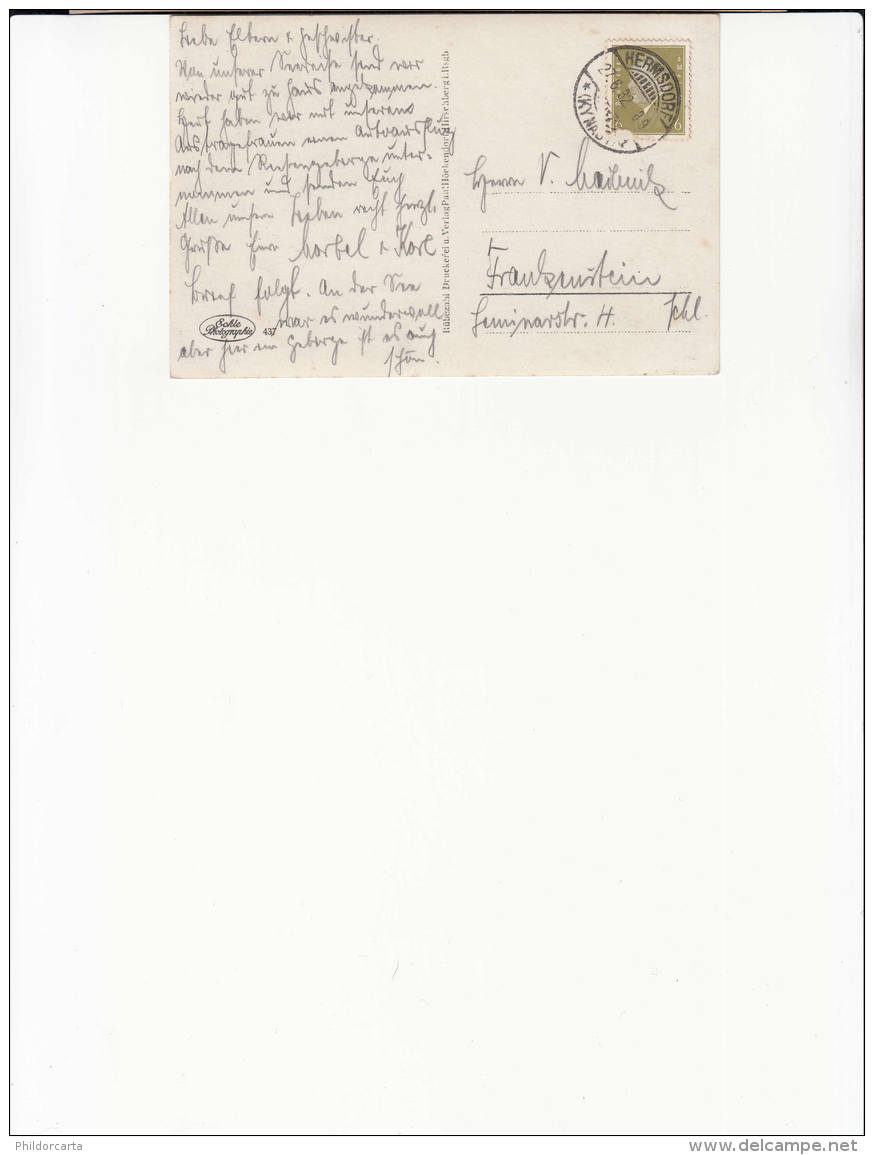 Liebe Eltern & Geschwister.
Von unserer Seereise sind wir
wieder gut zu Haus angekommen.
Heut haben wir mit unseren
Austragefrauen einen Autoausflug
nach dem Riesengebirge unter-
nommen und senden Euch
Allen unsere Lieben recht herzl.
Grüße Eure & Karl
Brief folgt. An der See
war es wundervoll
aber hier im Gebirge ist es auch
schön.
Echte
Photographie
437
Rübezahl Druckerei u. Verlag Paul Höckendorf Hirschberg i. Rsgb.
HERMSDORF
(KYNAST)
27.6.32
6
Herrn V.
Frankenstein
Seminarstr. 4. Schl.
Phildorcarta
www.delcampe.net